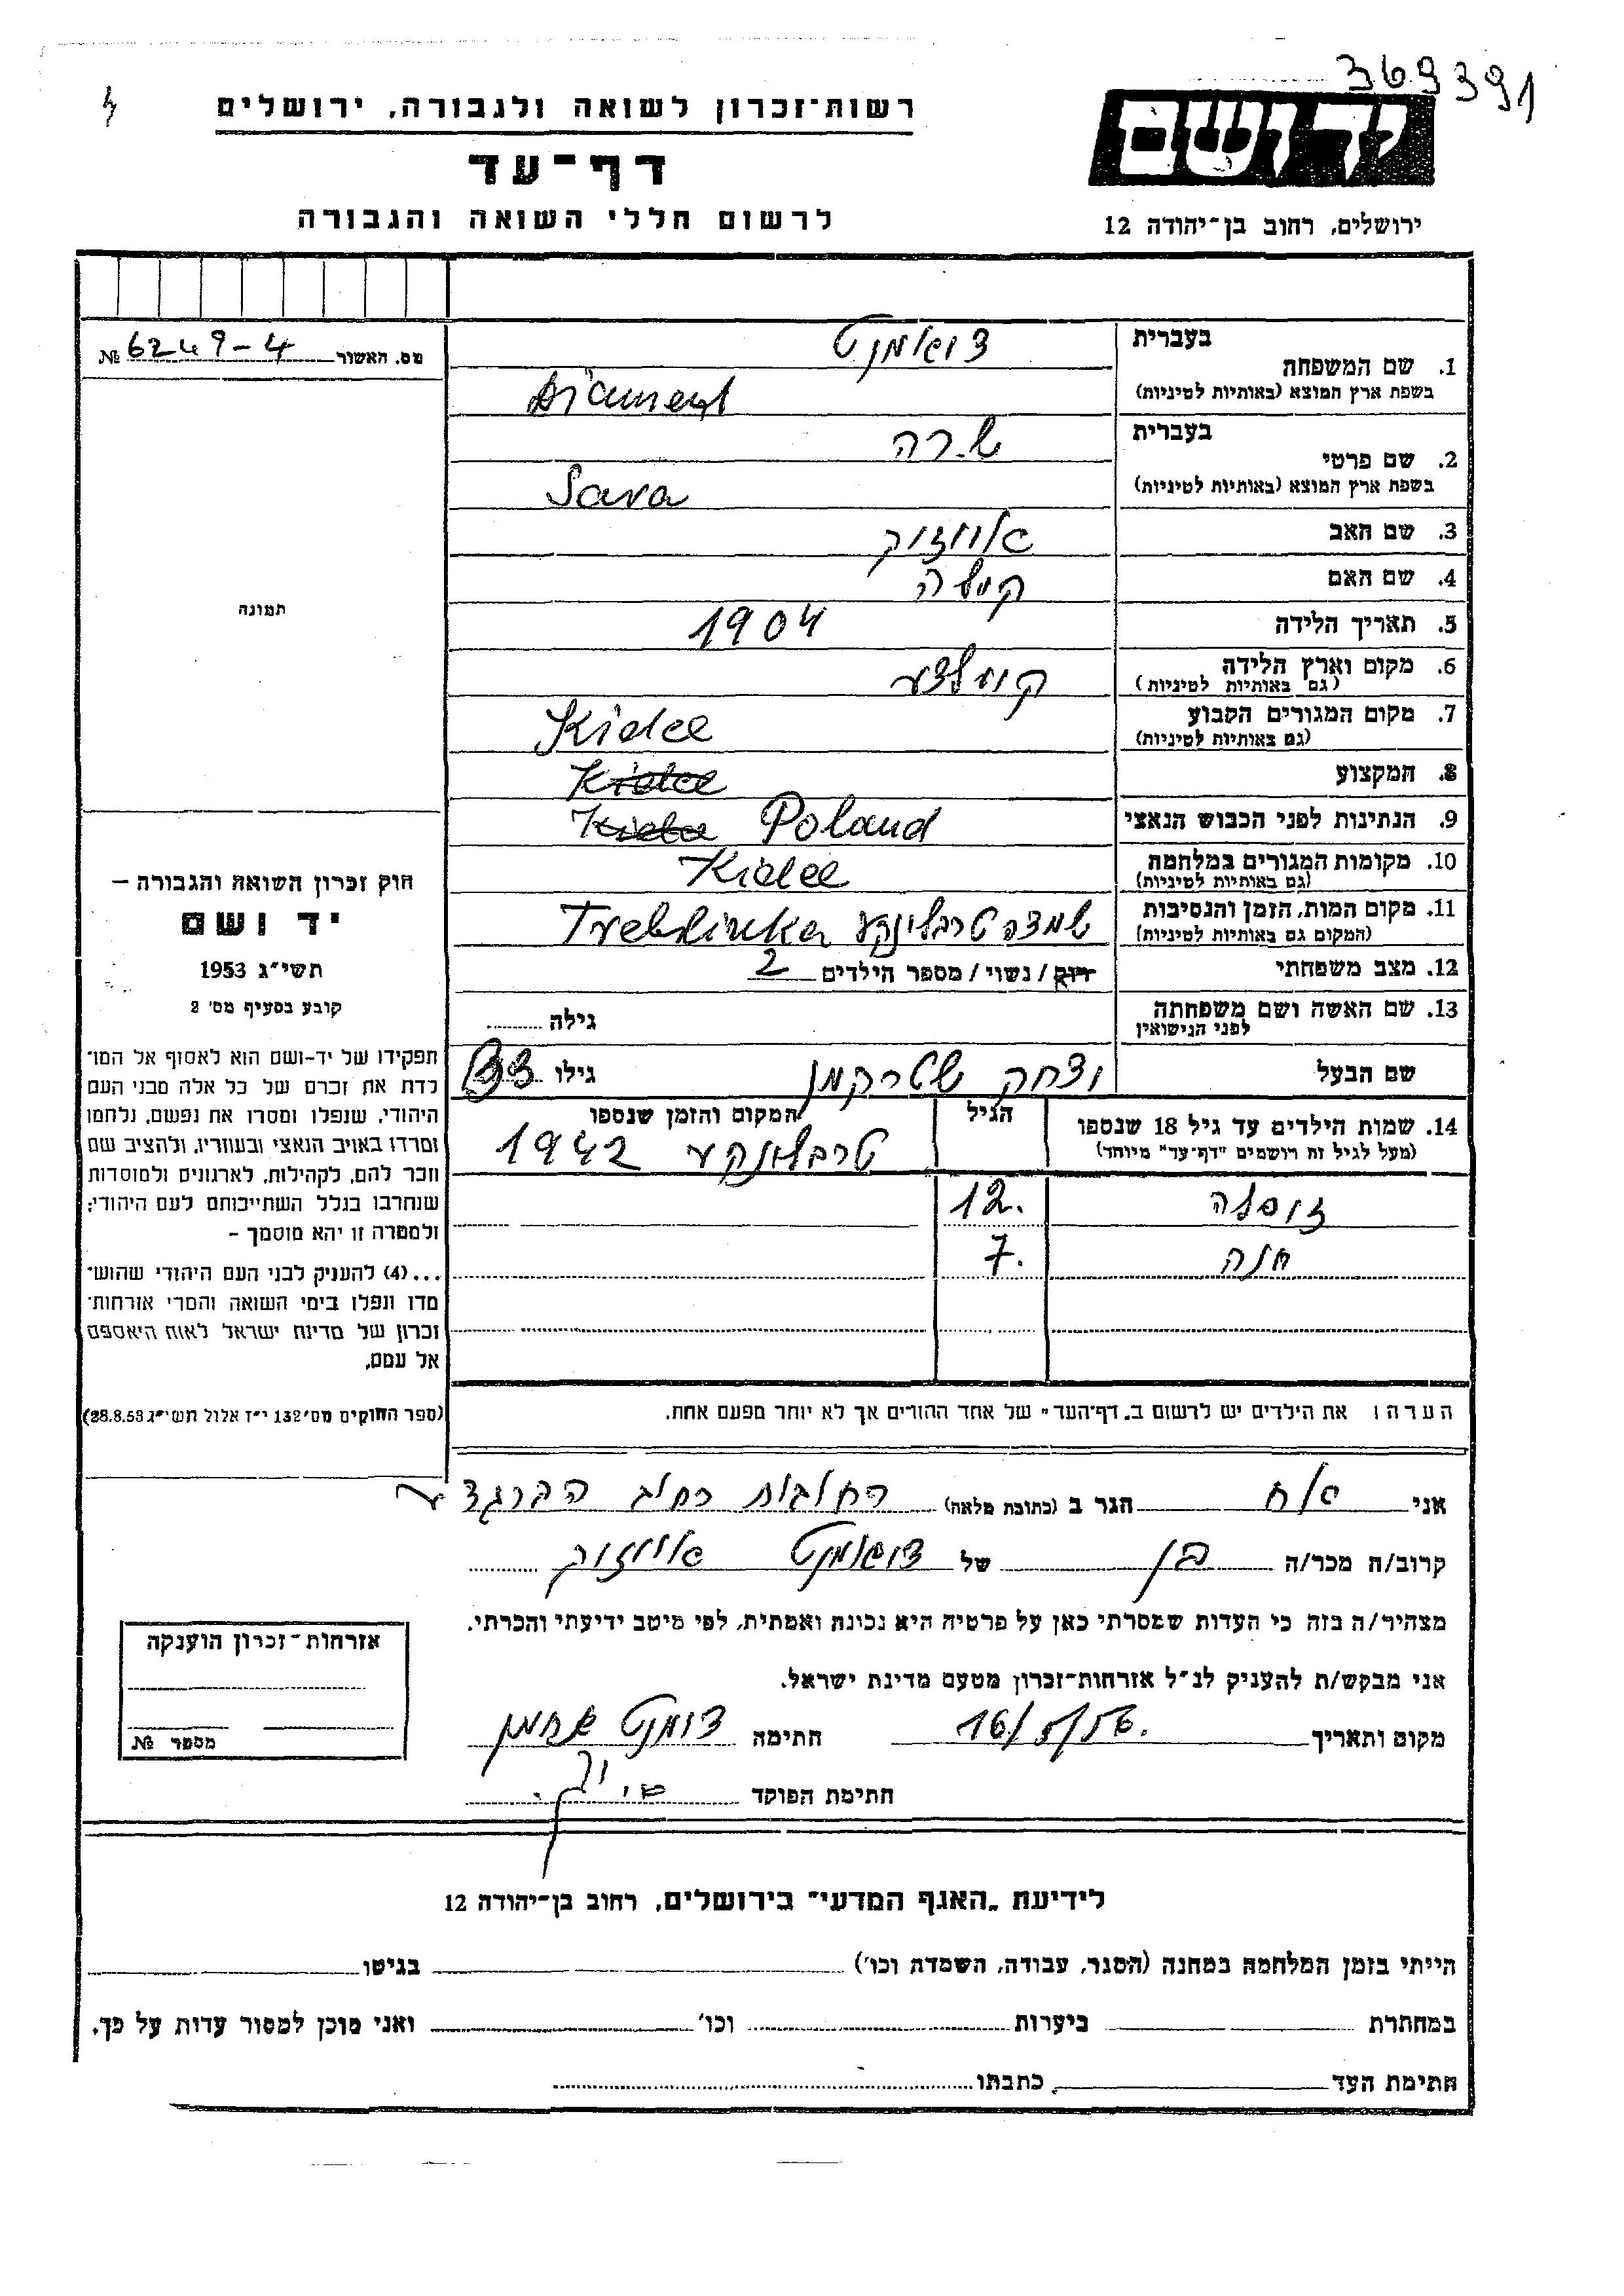 369391
רשות-זכרון לשואה ולגבורה, ירושלים
דף-עד
לרשום חללי השואה והגבורה
יד ושם
ירושלים, רחוב בן-יהודה 12
מס. האשור 6249-4 №
תמונה
חוק זכרון השואה והגבורה –
יד ושם
תשי״ג 1953
קובע בסעיף מס' 2
תפקידו של יד-ושם הוא לאסוף אל המו־
לדת את זכרם של כל אלה מבני העם
היהודי, שנפלו ומסרו את נפשם, נלחמו
ומרדו באויב הנאצי ובעוזריו, ולהציב שם
וזכר להם, לקהילות, לארגונים ולמוסדות
שנחרבו בגלל השתייכותם לעם היהודי;
ולמטרה זו יהא מוסמך –
...(4) להעניק לבני העם היהודי שהוש־
מדו ונפלו בימי השואה והמרי אזרחות־
זכרון של מדינת ישראל לאות היאספם
אל עמם.
(ספר החוקים מס' 132 י״ז אלול תשי״ג 28.8.53)
בעברית
1. שם המשפחה
בשפת ארץ המוצא (באותיות לטיניות)
Diament
בעברית שרה
2. שם פרטי
בשפת ארץ המוצא (באותיות לטיניות)
Sara
3. שם האב
4. שם האם
5. תאריך הלידה 1904
6. מקום וארץ הלידה
(גם באותיות לטיניות)
7. מקום המגורים הקבוע Kielce
(גם באותיות לטיניות)
8. המקצוע Kielce
9. הנתינות לפני הכבוש הנאצי Kielce Poland
10. מקומות המגורים במלחמה Kielce
(גם באותיות לטיניות)
11. מקום המות, הזמן והנסיבות טרבלינקע Treblinka
(המקום גם באותיות לטיניות)
12. מצב משפחתי רוק / נשוי / מספר הילדים 2
13. שם האשה ושם משפחתה גילה
לפני הנישואין
שם הבעל יצחק שטרקמן גילו
14. שמות הילדים עד גיל 18 שנספו הגיל המקום והזמן שנספו
(מעל לגיל זה רושמים "דף-עד" מיוחד) 1942
12.
חנה 7.
הערה: את הילדים יש לרשום ב„דף-העד" של אחד ההורים אך לא יותר מפעם אחת.
אני הגר ב (כתובת מלאה) רחובות רחוב
קרוב/ה מכר/ה בן של
מצהיר/ה בזה כי העדות שמסרתי כאן על פרטיה היא נכונה ואמתית, לפי מיטב ידיעתי והכרתי.
אני מבקש/ת להעניק לנ״ל אזרחות-זכרון מטעם מדינת ישראל.
מקום ותאריך 16/5/56. חתימה
חתימת הפוקד
אזרחות-זכרון הוענקה
מספר №
לידיעת „האגף המדעי" בירושלים, רחוב בן-יהודה 12
הייתי בזמן המלחמה במחנה (הסגר, עבודה, השמדה וכו') בגיטו
במחתרת ביערות וכו' ואני מוכן למסור עדות על כך.
חתימת העד כתבתו